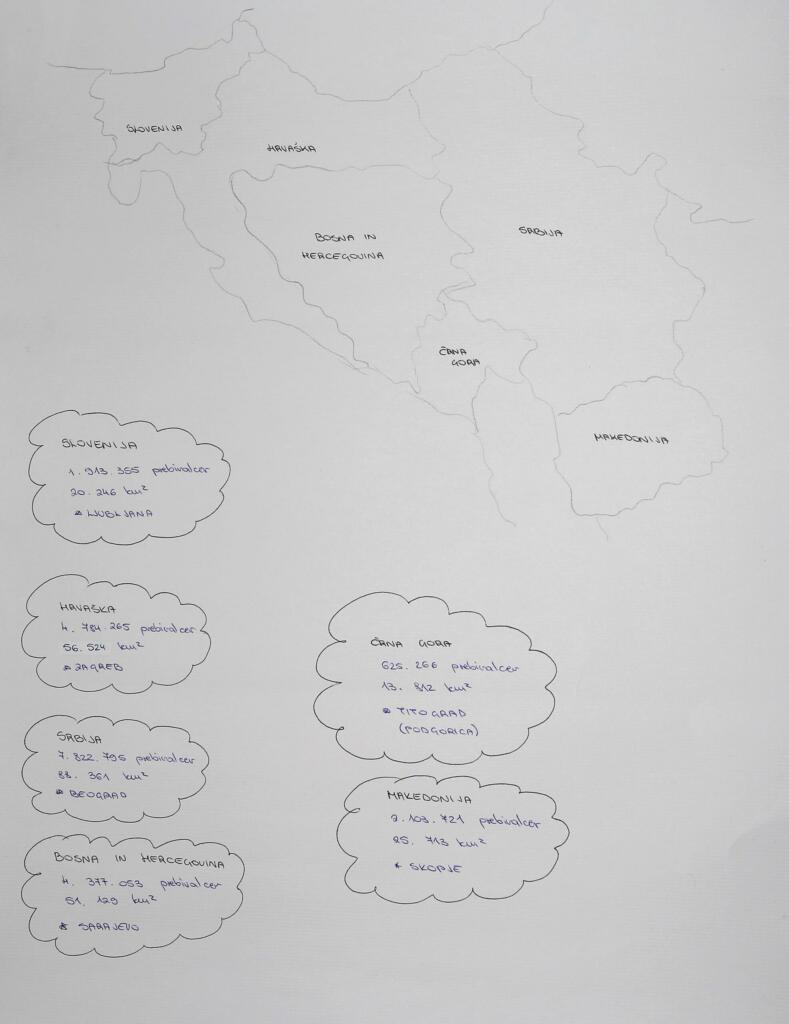 SLOVENIJA
HRVAŠKA
BOSNA IN
HERCEGOVINA
SRBIJA
ČRNA
GORA
MAKEDONIJA
SLOVENIJA
1.913.355 prebivalcev
20.246 km²
* LJUBLJANA
HRVAŠKA
4.784.265 prebivalcev
56.524 km²
* ZAGREB
SRBIJA
7.822.795 prebivalcev
88.361 km²
* BEOGRAD
BOSNA IN HERCEGOVINA
4.377.053 prebivalcev
51.129 km²
* SARAJEVO
ČRNA GORA
625.266 prebivalcev
13.812 km²
* TITOGRAD
(PODGORICA)
MAKEDONIJA
2.103.721 prebivalcev
25.713 km²
* SKOPJE